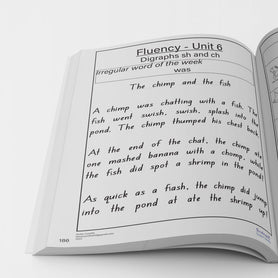 Fluency - Unit 6
Digraphs sh and ch
Irregular word of the week
was
The chimp and the fish
A chimp was chatting with a fish. The
fish went swish, swish, splash into the
pond. The chimp thumped his chest back
At the end of the chat, the chimp ate
one mashed banana with a chomp, while
the fish did spot a shrimp in the pond!
As quick as a flash, the chimp did jump
into the pond at ate the shrimp up!
186